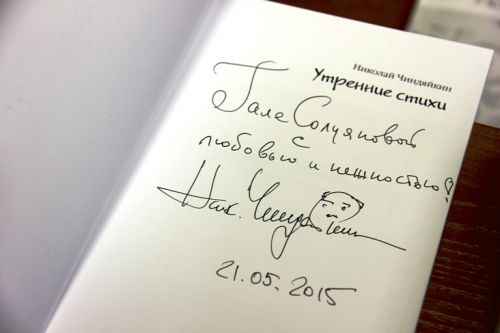 Николай Чиндяйкин
Утренние стихи
Гале Солуяновой
с
любовью и нежностью!
Ник. Чиндяйкин
21.05.2015